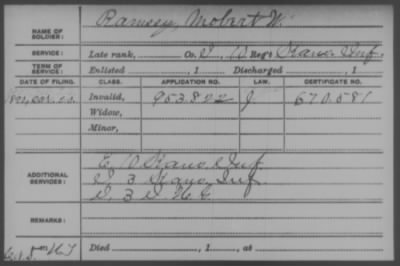 NAME OF SOLDIER: Ramsey, Mobert W.
SERVICE: Late rank, Co. D, 10 Reg't Kans. Inf.
TERM OF SERVICE: Enlisted , 1 Discharged , 1
DATE OF FILING. CLASS. APPLICATION NO. LAW. CERTIFICATE NO.
Invalid, 953.822 J. 670.581
Widow,
Minor,
ADDITIONAL SERVICES: E 10 Kans. Inf.
3 Kans. Inf.
REMARKS:
Died , 1 , at